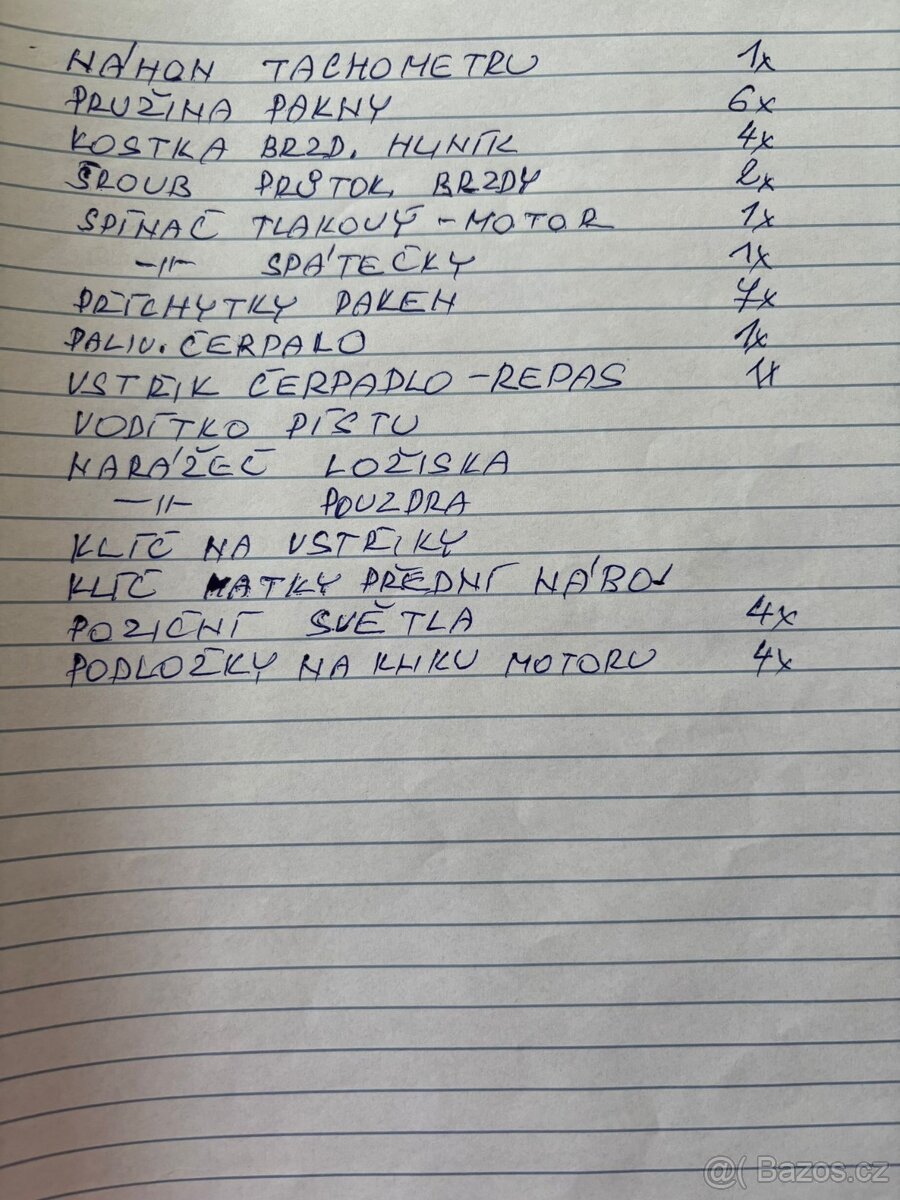 NÁHON TACHOMETRU 1x
PRUŽINA PAKNY 6x
KOSTKA BRZD. HLINÍK 4x
ŠROUB PRŮTOK. BRZDY 2x
SPÍNAČ TLAKOVÝ - MOTOR 1x
-11- SPÁTEČKY 1x
PŘÍCHYTKY PAKEN 7x
PALIV. ČERPALO 1x
VSTŘIK ČERPADLO - REPAS 1x
VODÍTKO PÍSTU
NARÁŽEČ LOŽISKA
-11- POUZDRA
KLÍČ NA VSTŘIKY
KLÍČ MATKY PŘEDNÍ NÁBOJ
POZIČNÍ SVĚTLA 4x
PODLOŽKY NA KLIKU MOTORU 4x
@( Bazos.cz